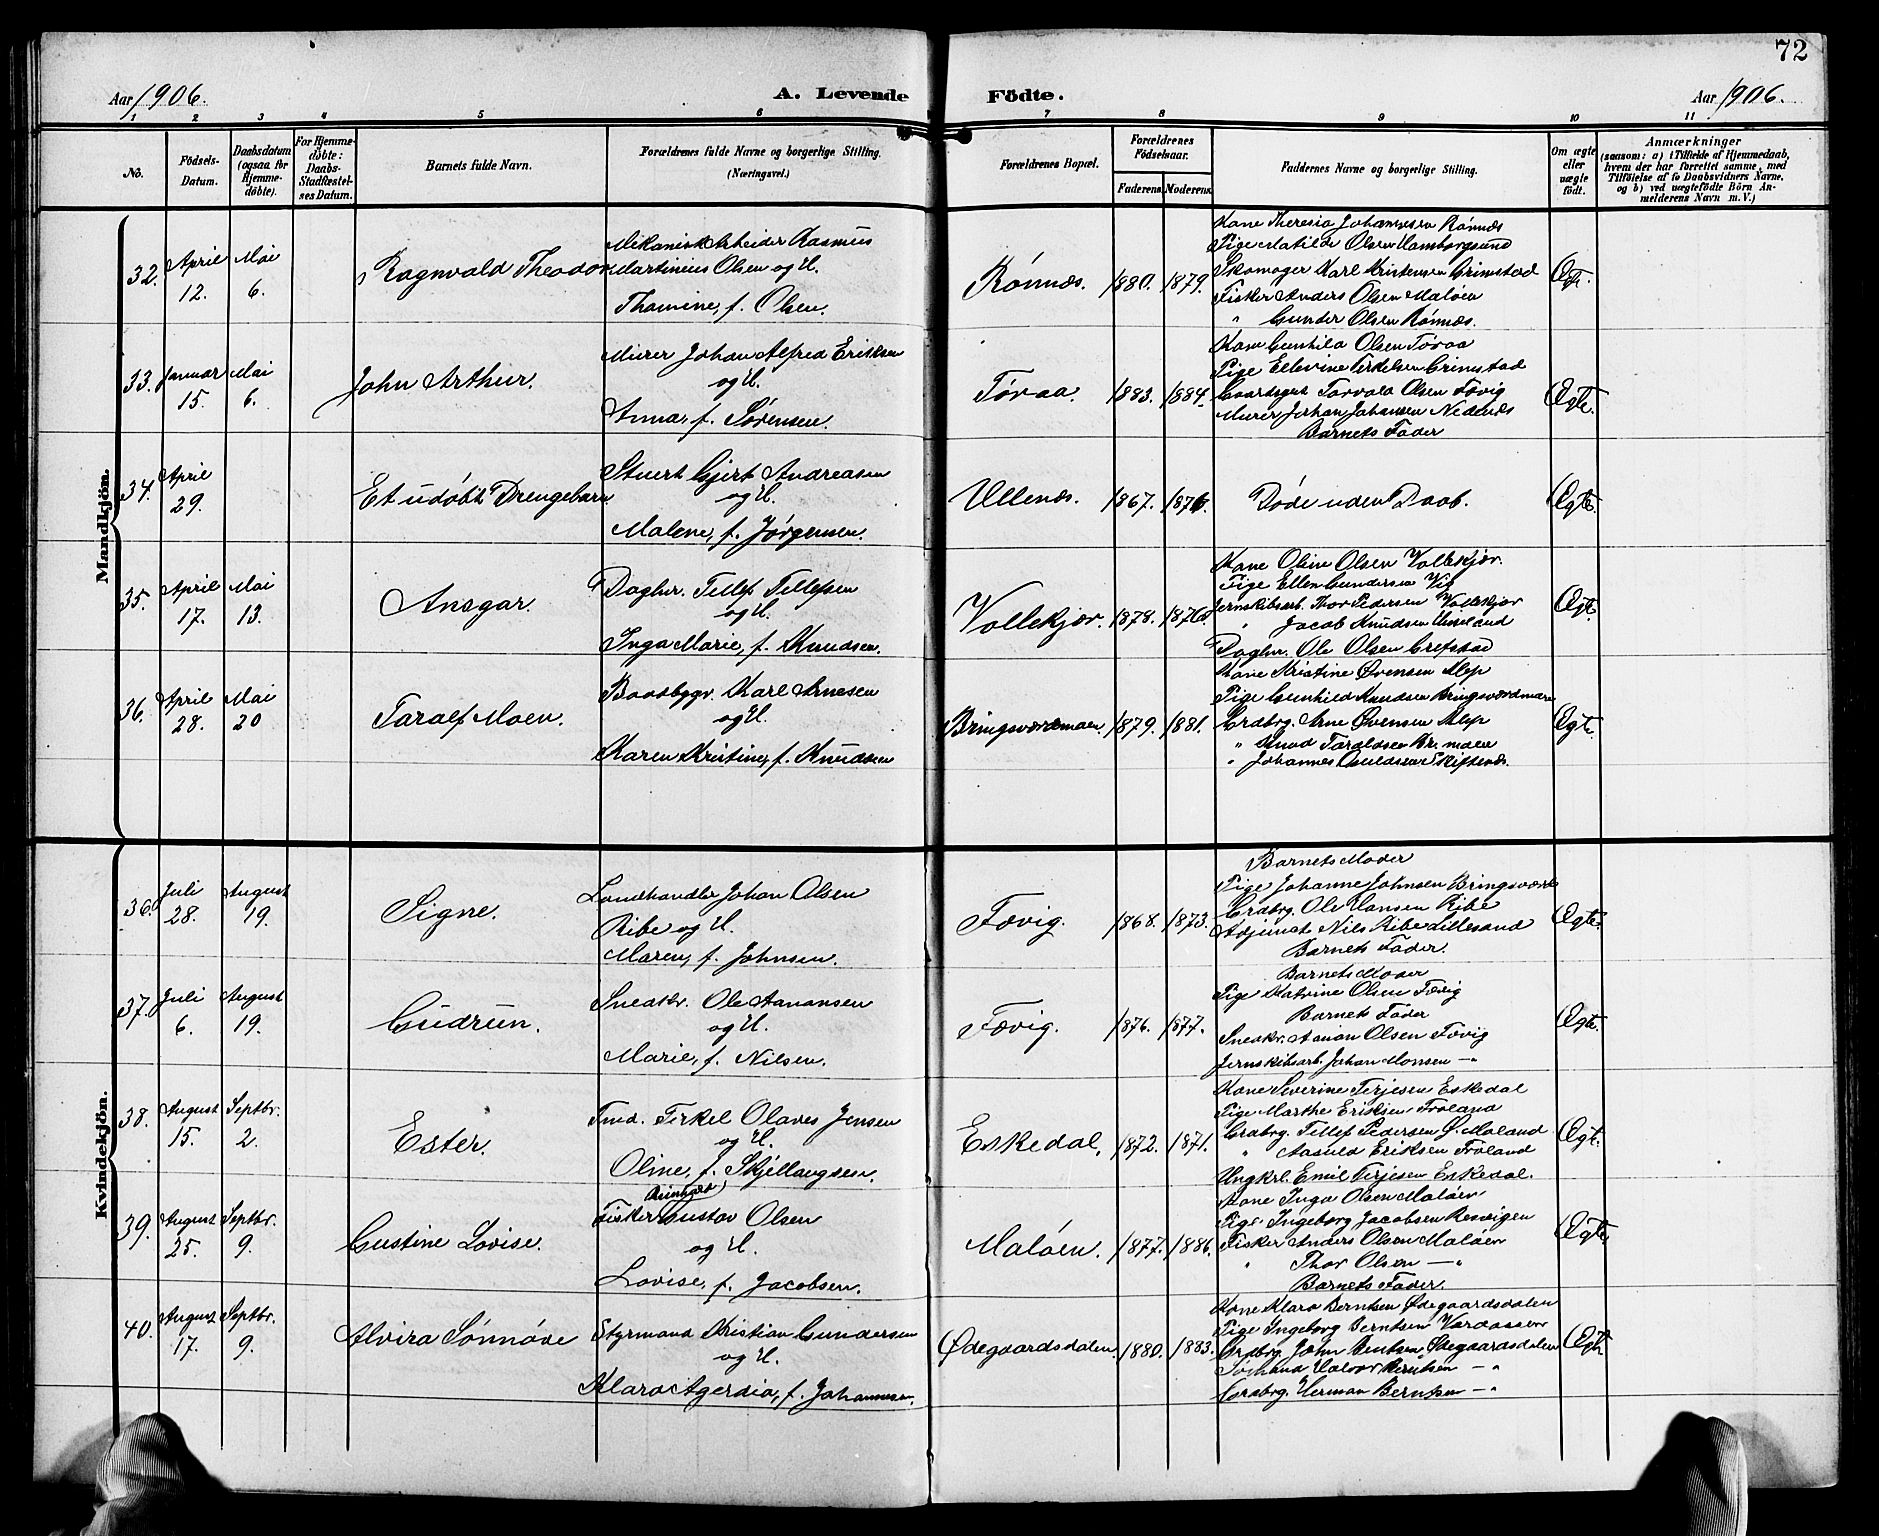 72
Aar 1906.
A. Levende
Födte.
Aar 1906.
1 2 3 4 5 6 7 8 9 10 11
No.
Födsels-
Datum.
Daabsdatum
(ogsaa for
Hjemme-
döbte).
For Hjemme-
döbte:
Daabs-
Stadfæstel-
ses Datum.
Barnets fulde Navn.
Forældrenes fulde Navne og borgerlige Stilling.
(Næringsvei.)
Forældrenes Bopæl.
Forældrenes
Födselsaar.
Faderens.
Moderens.
Faddernes Navne og borgerlige Stilling.
Om ægte
eller
uægte
födt.
Anmærkninger
(saasom: a) i Tilfælde af Hjemmedaab,
hvem der har forrettet samme, med
Tilföielse af to Daabsvidners Navne,
og b) ved uægtefödte Börn An-
melderens Navn m. V.)
Mandkjön.
32. April 12. Mai 6. Ragnvald Theodor
Mikanisk Arbeider Rasmus
Martinius Olsen og H.
Thomine, f. Olsen.
Rønnes. 1880. 1879.
Kone Theresia Johannessen Rønnes
Pige Matilde Olsen Hamborgsund
Skomager Karl Kristensen Grimstad
Fisker Anders Olsen Maløen
" Gunder Olsen Rønnes.
Ægte.
33. Januar 15. Mai 6. John Arthur.
Murer Johan Alfred Eriksen
og H.
Anna, f. Sørensen.
Tøraa. 1883. 1884.
Kone Gunhild Olsen Tøraa
Pige Ellevine Terkelsen Grimstad
Gaardsgut Torvald Olsen Fævig
Murer Johan Johansen Nedenes
Barnets Fader
Ægte.
34. April 29. Et udøbt Drengebarn
Stuert Gjert Andreasen
og H.
Malene, f. Jørgensen.
Ullenes. 1867. 1876.
Døde uden Daab.
Ægte.
35. April 17. Mai 13. Ansgar.
Daglnr. Tellef Tellefsen
og H.
Inga Marie, f. Knudsen.
Vollekjær. 1878. 1876.
Kone Oline Olsen Vollekjær.
Pige Ellen Gundersen Vig
Jernskibsarb. Thor Pedersen Vollekjær
" Jacob Knudsen
Daglnr. Ole Olsen Grefstad
Ægte.
36. April 28. Mai 20 Taralf Moen.
Baadbyggr. Karl Arnesen
og H.
Karen Kristine, f. Knudsen
Bringsværdmoen 1879. 1881.
Kone Kristine Evensen Alep
Pige Gunhild Knudsen Bringsværdmoen
Grdbrg. Arne Evensen Alep
" Knud Taraldsen Br. moen
" Johannes Osuldsen Skiftenes.
Ægte.
Kvindekjön.
36. Juli 28. August 19. Signe.
Landhandler Johan Olsen
Ribe og H.
Maren, f. Johnsen.
Fævig. 1868. 1873.
Barnets Moder
Pige Johanne Johnsen Bringsværd
Grdbrg. Ole Hansen Ribe
Adjunct Nils Ribe Lillesand
Barnets Fader.
Ægte.
37. Juli 6. August 19. Gudrun.
Snedkr. Ole Aanonsen
og H.
Marie, f. Nilsen.
Fævig. 1876. 1877.
Barnets Moder
Pige Katrine Olsen Fævig
Barnets Fader
Snedkr. Aanon Olsen Fævig
Jernskibsarb. Johan Monsen — "
Ægte.
38. August 15. Septbr. 2. Ester.
Tmd. Terkel Olaves Jensen
og H.
Oline, f. Skjellaugsen.
Eskedal. 1872. 1871.
Kone Severine Terjesen Eskedal
Pige Marthe Eriksen Froland
Grdbrg. Tellef Pedersen Ø. Moland
" Aasuld Eriksen Froland
Ungkrl. Emil Terjesen Eskedal.
Ægte.
39. August 25. Septbr. 9. Gustine Lovise.
Reinhard
Fisker Gustav Olsen
og H.
Lovise, f. Jacobsen.
Maløen. 1877. 1886.
Kone Inga Olsen Maløen
Pige Ingeborg Jacobsen Resvigen
Fisker Anders Olsen Maløen
" Thor Olsen — "
Barnets Fader
Ægte.
40. August 17. Septbr. 9. Alvira Sønnøve
Styrmand Kristian Gundersen
og H.
Klara Agerdia, f. Johannesen.
Ødegaardsdalen. 1880. 1883.
Kone Klara Berntsen Ødegaardsdalen
Pige Ingeborg Berntsen Vardaasen
Grdbrg. John Berntsen Ødegaardsdalen
Sømand Halvor Berntsen — "
Grdbrg. Herman Berntsen — "
Ægte